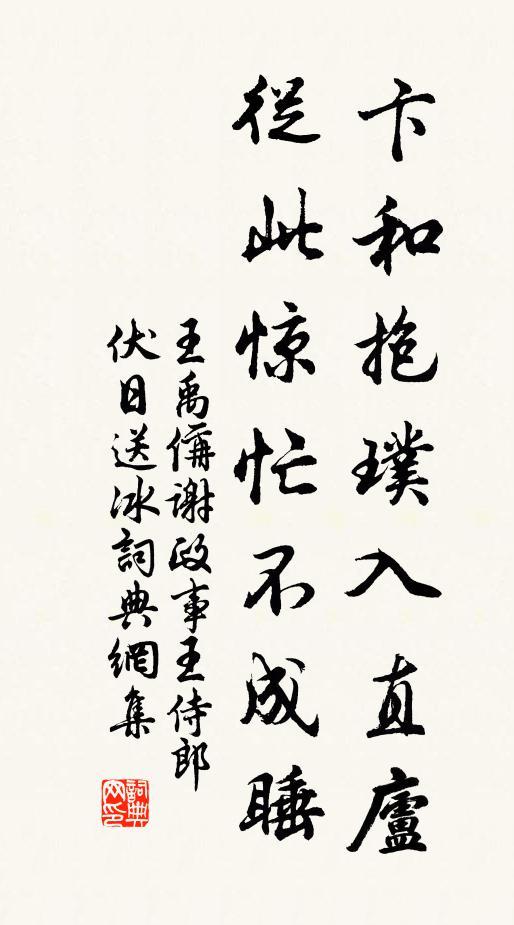 卞和抱璞入直廬
從此惊忙不成睡
王禹偁謝政事王侍郎
伏日送冰詞典網集
詞典
网印